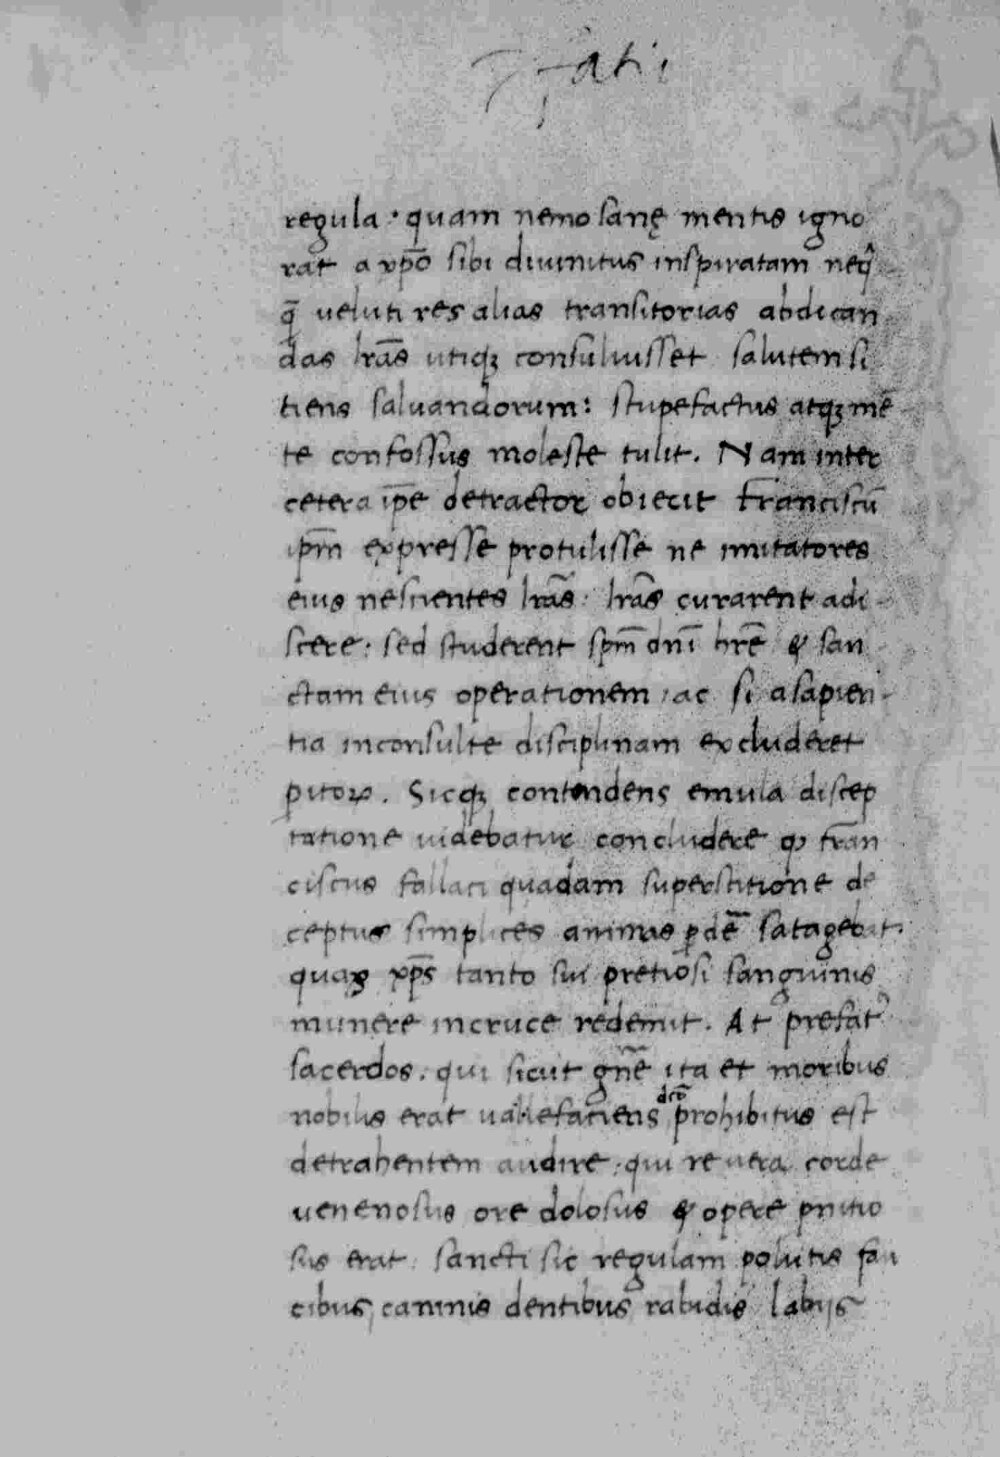 fati
regula · quam nemo sanę mentis igno
rat a xp̄o sibi diuinitus inspiratam neq̃
q̄ veluti res alias transitorias abdican
das lr̄as utiqꝫ consuluisset salutem si
tiens saluandorum: stupefactus atqꝫ mē
te confossus moleste tulit. Nam inter
cetera ip̄e detractor obiecit Franciscū
ip̄m expresse protulisse ne imitatores
eius nescientes lr̄as: lr̄as curarent adi
scere: sed studerent sp̄m dn̄i hr̄e & san
ctam eius operationem, ac si a sapien
tia inconsulte disciplinam excluderet
Sicqꝫ contendens emula discep
tatione uidebatur concludere ꝙ fran
ciscus fallaci quadam superstitione de
ceptus simplices animas ꝑdēr satagebat.
quas xp̄s tanto sui pretiosi sanguinis
munere in cruce redemit. At prefatꝰ
sacerdos. qui sicut gn̄e ita et moribus
nobilis erat uallefaciens prohibitus est
detrahentem audire: qui re uera corde
uenenosus ore dolosus & opere pnitio
sus erat. sancti sic regulam polutis fau
cibus, caninis dentibus, rabidis labijs